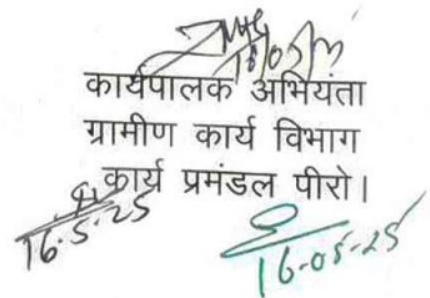 कार्यपालक अभियंता
ग्रामीण कार्य विभाग
कार्य प्रमंडल पीरो।
16.5.25
16-05-25